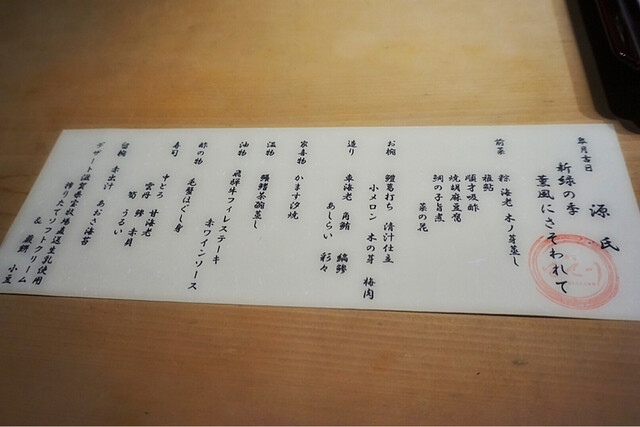 年月吉日
源氏
新緑の季
薫風にさそわれて
前菜
粽 海老 木ノ芽蒸し
稚鮎
順才吸酢
焼胡麻豆腐
鯛の子旨煮
菜の花
お椀
鱧葛打ち 清汁仕立
小メロン 木の芽 梅肉
造り
車海老 角鮪 縞鯵
あしらい 彩々
家喜物
かます汐焼
温物
鱶鰭茶碗蒸し
油物
飛騨牛フィレステーキ
赤ワインソース
酢の物
毛蟹ほぐし身
寿司
中とろ 甘海老
雲丹 鱒 赤貝
筍 うるい
留椀
赤出汁 あおさ海苔
デザート
滋賀県宝牧場直送生乳使用
搾りたてソフトクリーム
& 蕨餅 小豆